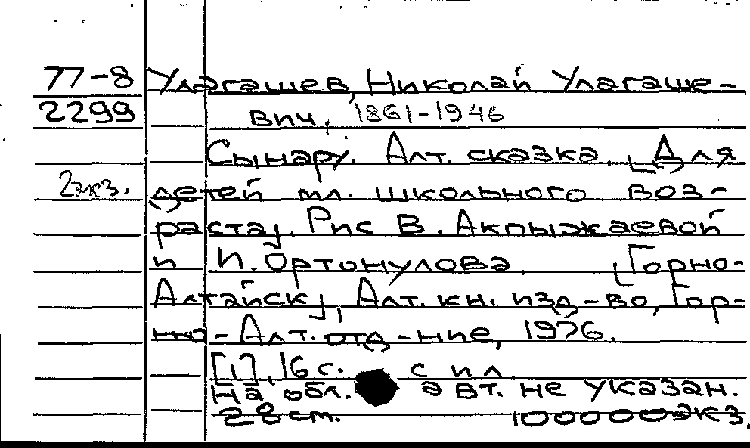 77-8 Улагашев, Николай Улагаше-
2299 вич, 1861-1946
Сынару. Алт. сказка. [Для
2экз. детей мл. школьного воз-
раста]. Рис В. Акпыжаевой
и И. Ортонулова. [Горно-
Алтайск], Алт. кн. изд-во, Гор-
но-Алт. отд-ние, 1976.
[1], 16 с. с ил.
На обл. авт. не указан.
28 см. 100000 экз.